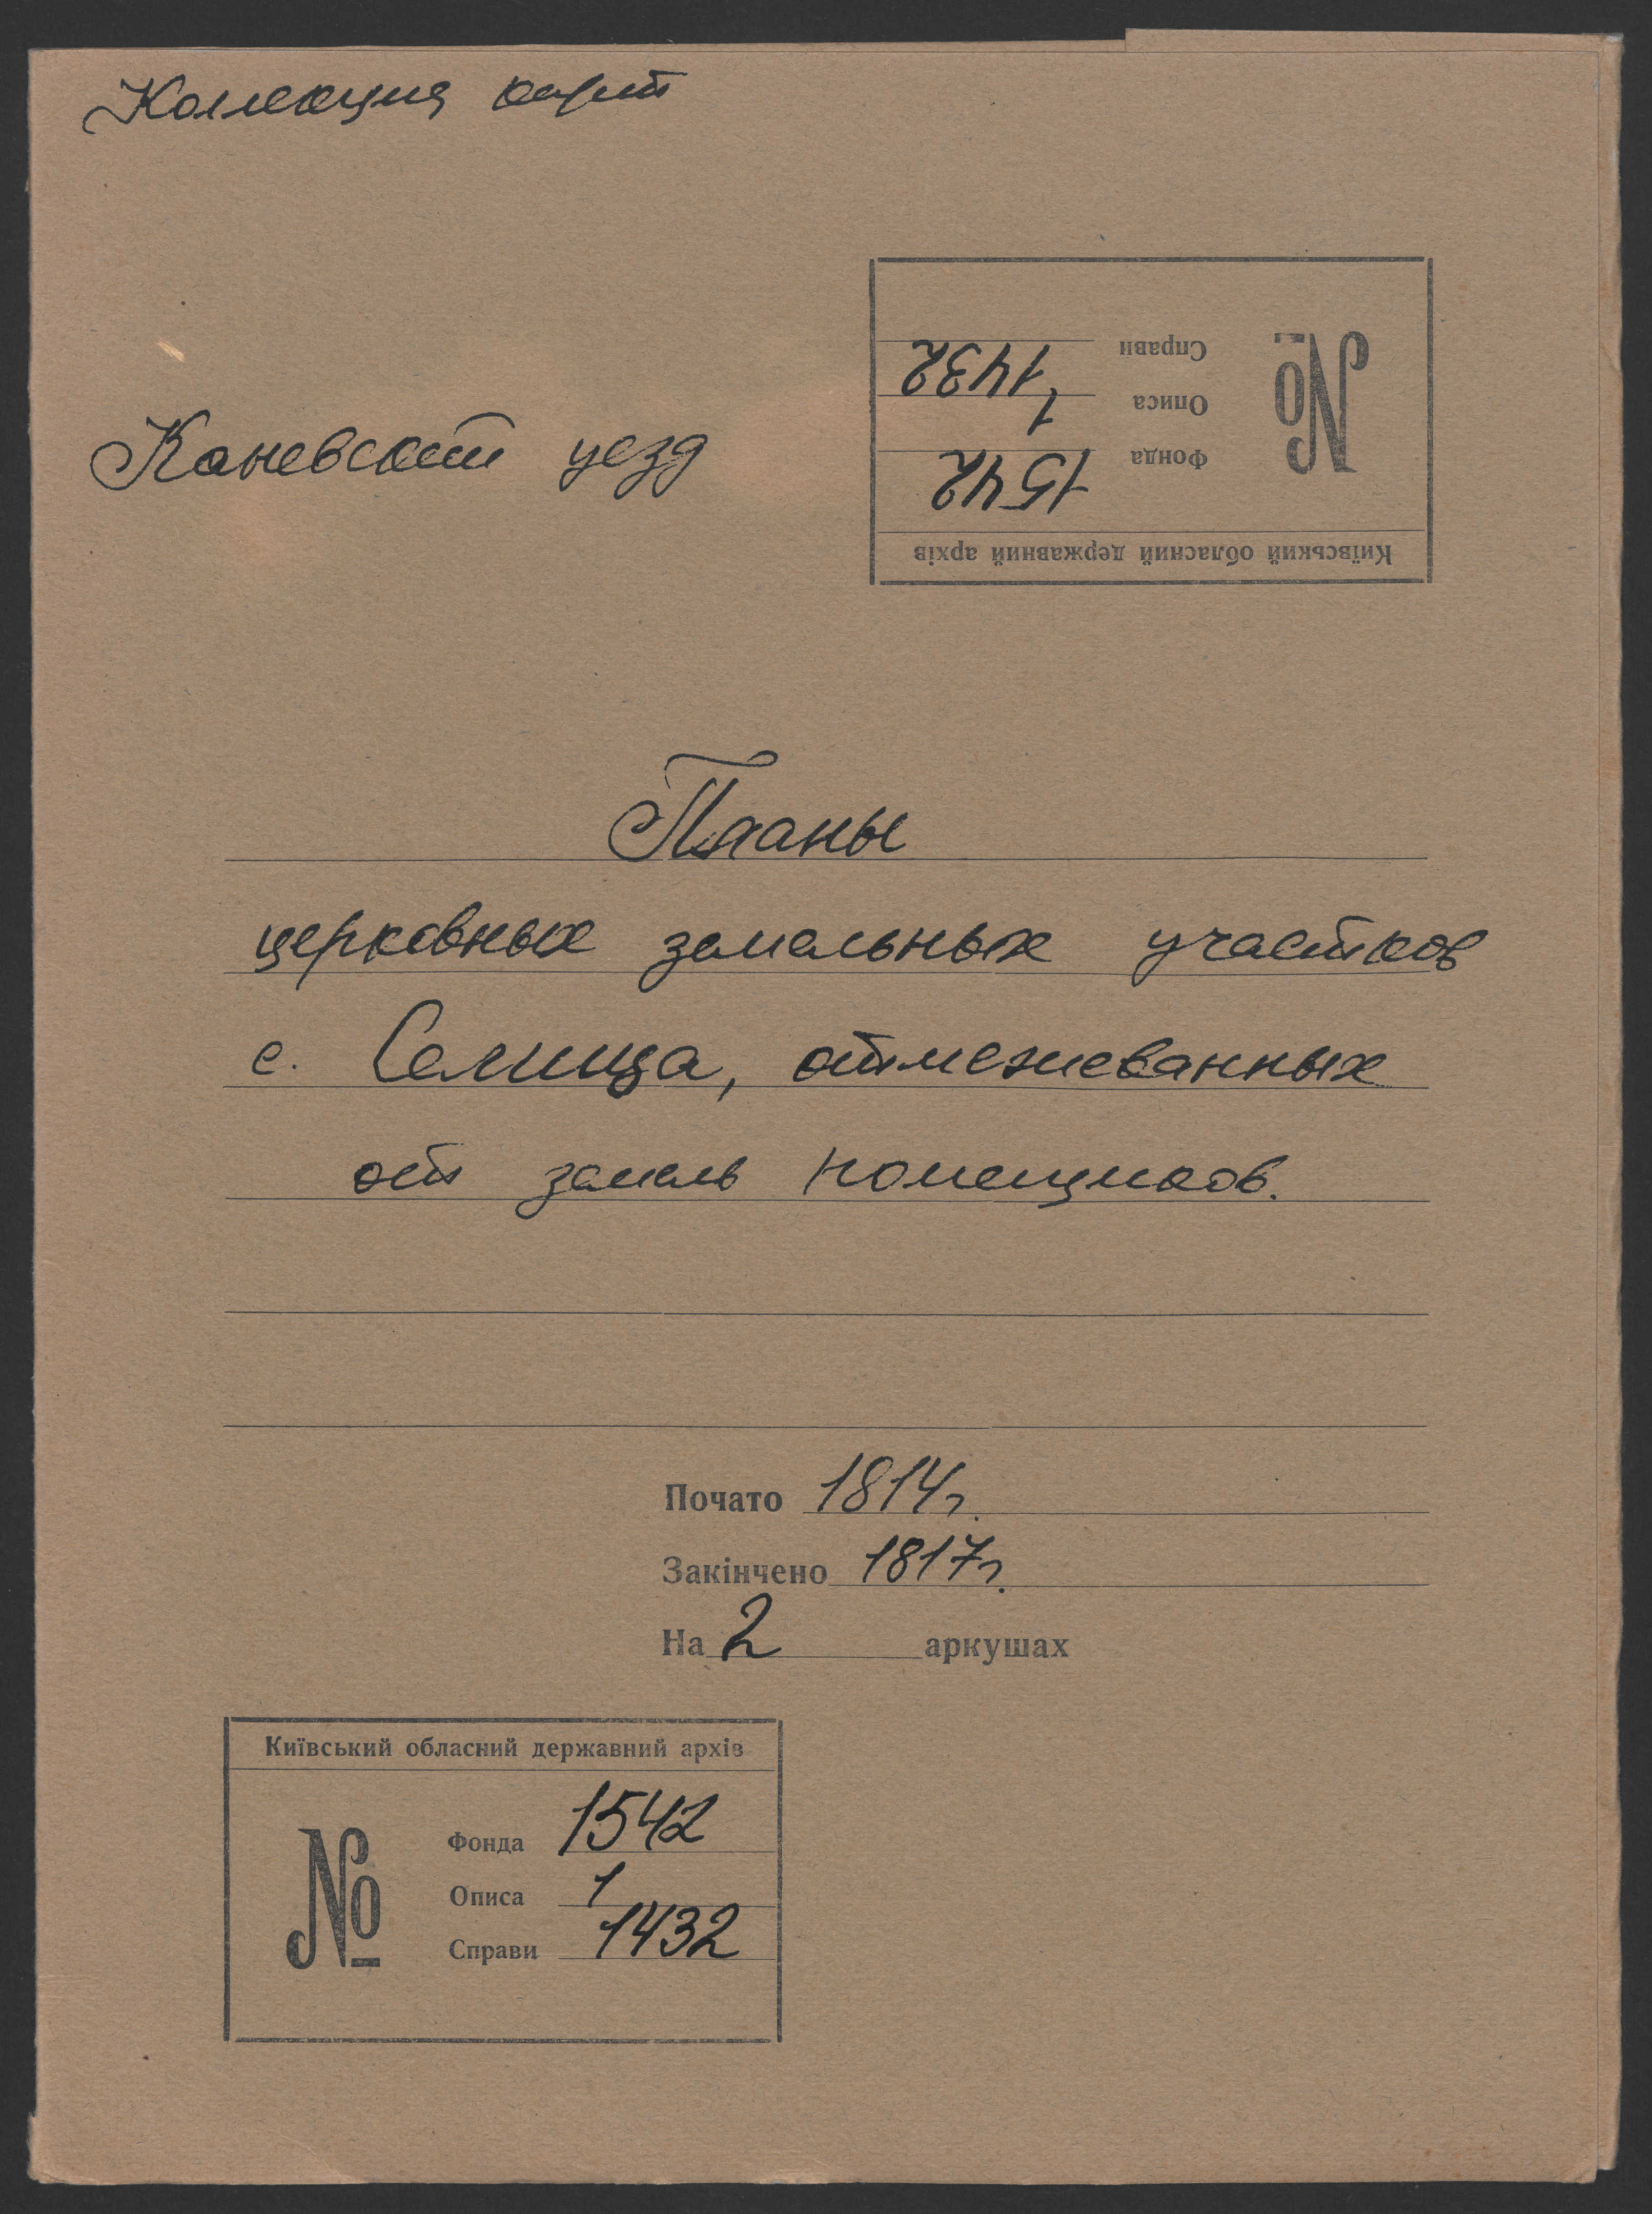 Коллекция карт
Каневский уезд
Справи 1432
Описа 1
№
Фонда 1542
Київський обласний державний архів
Планы
церковных земельных участков
с. Селища, отмежеванных
от земель помещиков.
Почато 1814г.
Закінчено 1817г.
На 2 аркушах
Київський обласний державний архів
№
Фонда 1542
Описа 1
Справи 1432